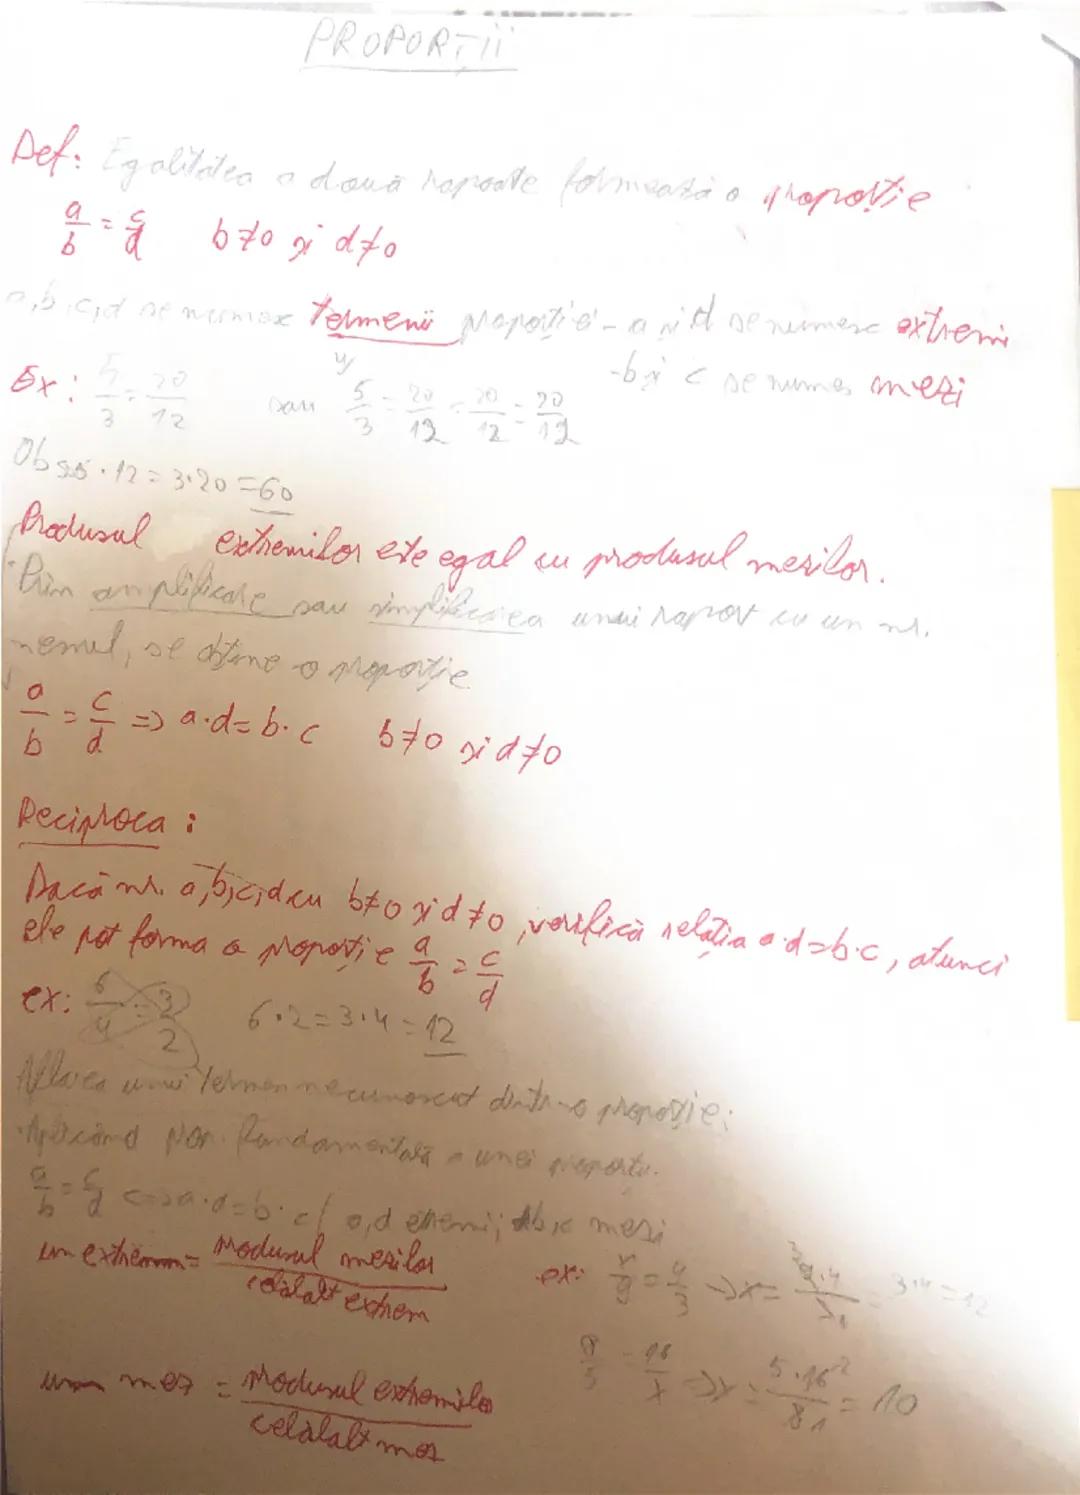 PROPORȚII
Def: Egalitatea a două rapoarte formează o proporție
a/b = c/d b≠0 și d≠0
a,b,c,d se numesc termenii proporției - a și d se numesc extremi
-b și c se numes mezi
Ex: 5/3 = 20/12 sau 5/3 = 20/12 = 20/12 = 20/12
Obs 5·12=3·20=60
Produsul extremilor este egal cu produsul mezilor.
·Prin amplificare sau simplificarea unui raport cu un nr.
nenul, se obține o proporție
a/b = c/d => a·d=b·c b≠0 și d≠0
Reciproca:
Dacă nr. a,b,c,d cu b≠0 și d≠0, verifică relația a·d=b·c, atunci
ele pot forma o proporție a/b = c/d
ex: 6/4 = 3/2 6·2=3·4=12
Aflarea unui termen necunoscut dintr-o proporție:
·Aplicând fundamentală a unei proporții.
a/b = c/d <=> a·d=b·c / a,d extremi; b,c mezi
un extrem = produsul mezilor/celălalt extrem
ex: x/9 = 4/3 => x = 9·4/3 1 = 3·4=12
un mez = produsul extremilo/celălalt mez
8/5 = 16/x => x = 5·16 2/8 1 = 10